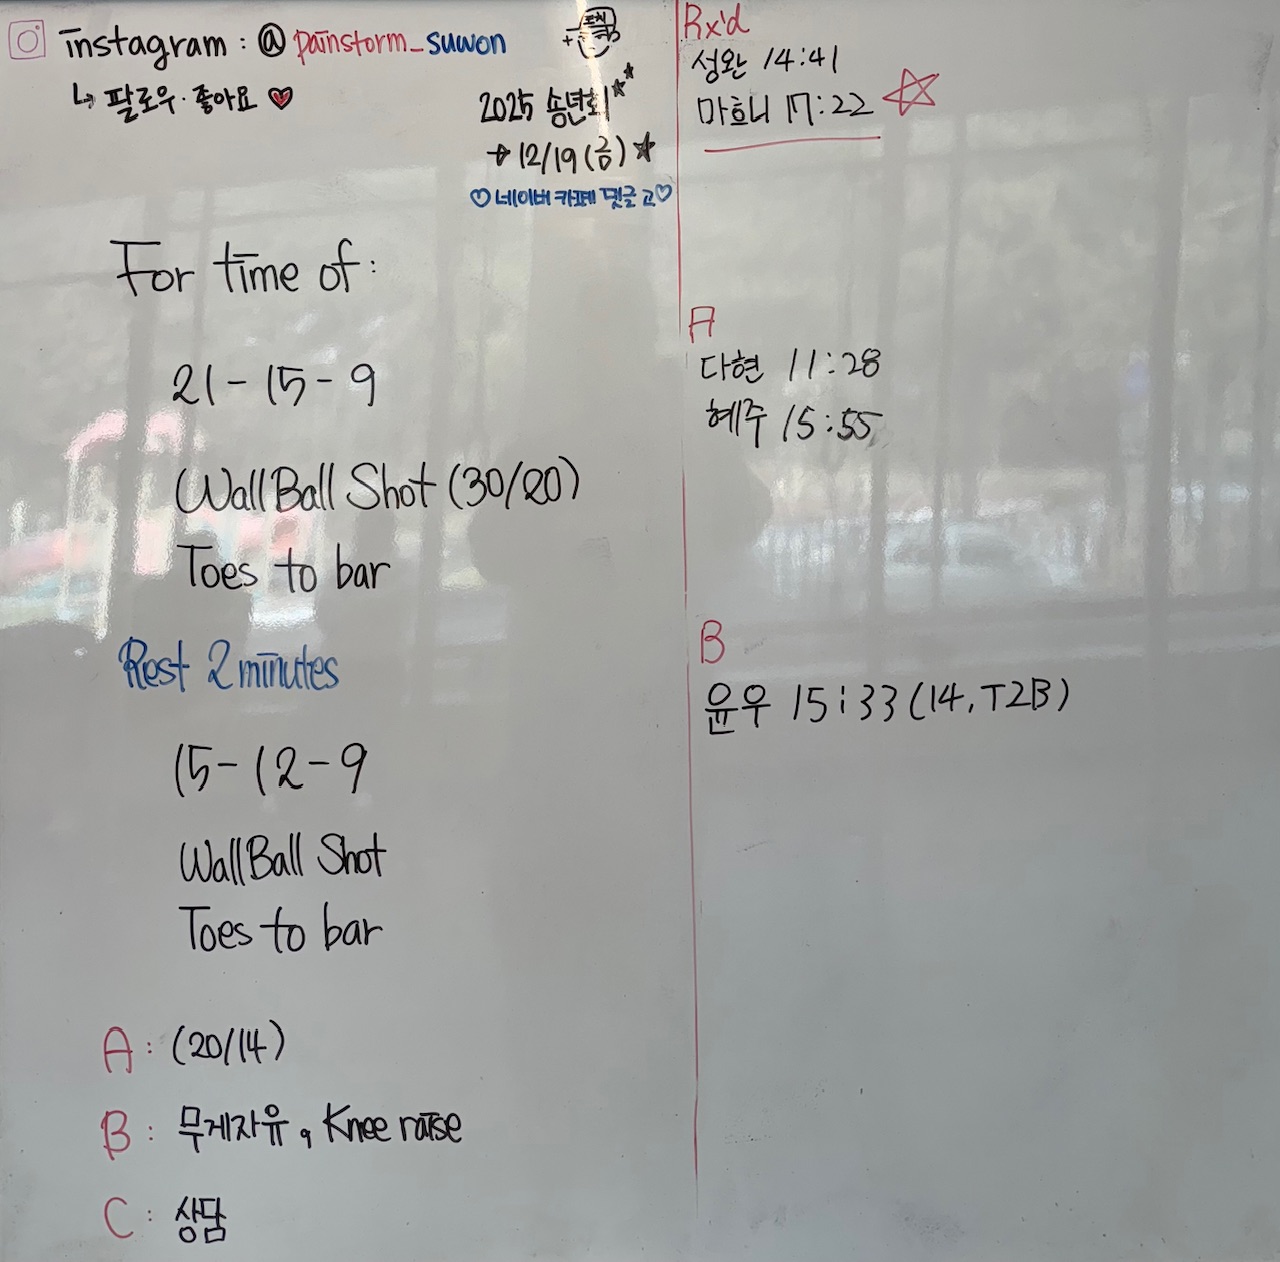 instagram : @painstorm_suwon
↳ 팔로우·좋아요 ♥
2025 송년회
→ 12/19 (금) ★
♡네이버 카페 댓글 고♡
For time of :
21 - 15 - 9
Wall Ball Shot (30/20)
Toes to bar
Rest 2 minutes
15 - 12 - 9
Wall Ball Shot
Toes to bar
A : (20/14)
B : 무게자유, Knee raise
C : 상담
Rx'd
성완 14:41
마흐니 17:22 ☆
A
다현 11:28
혜주 15:55
B
윤우 15:33 (14, T2B)